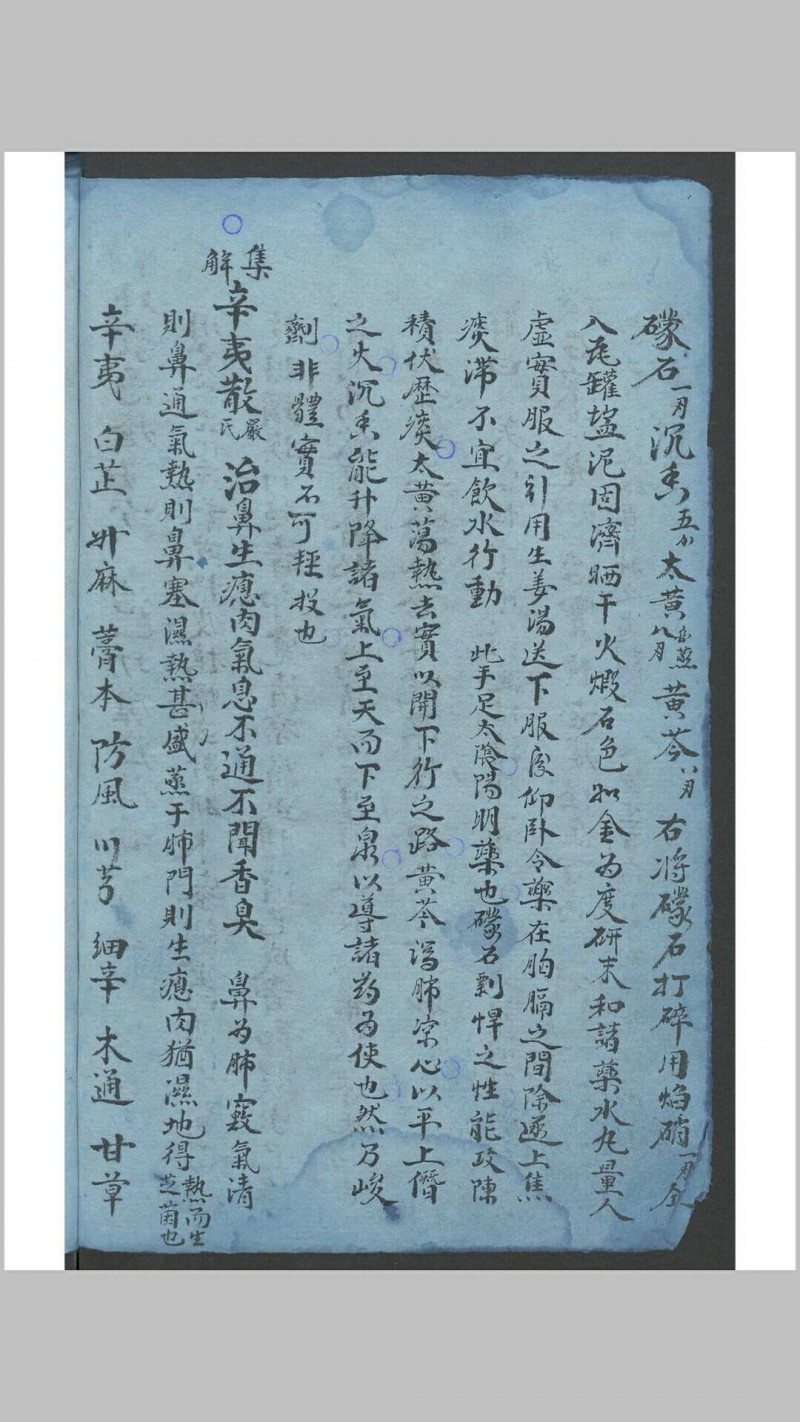 礞石一月沉香五分大黄酒蒸八月黄芩八月右将礞石打碎用焰硝一月仝
入瓦罐塩泥固濟晒干火煅石色如金为度研末和諸藥水丸量人
虛實服之引用生姜湯送下服後仰卧令藥在胸膈之間除逐上焦
痰滞不宜飲水行動 此手足太陰陽明藥也礞石剽悍之性能攻陳
積伏歴痰大黄蕩熱去實以開下行之路黄芩瀉肺凉心以平上僭
之火沉香能升降諸氣上至天而下至泉以導諸药为使也然乃峻
劑非體實不可輕投也
集解
辛夷散嚴氏 治鼻生瘜肉氣息不通不聞香臭 鼻为肺竅氣清
則鼻通氣熱則鼻塞濕熱甚盛蒸于肺門則生瘜肉猶濕地得熱而生芝菌也
辛夷 白芷 升麻 藁本 防風 川芎 細辛 木通 甘草